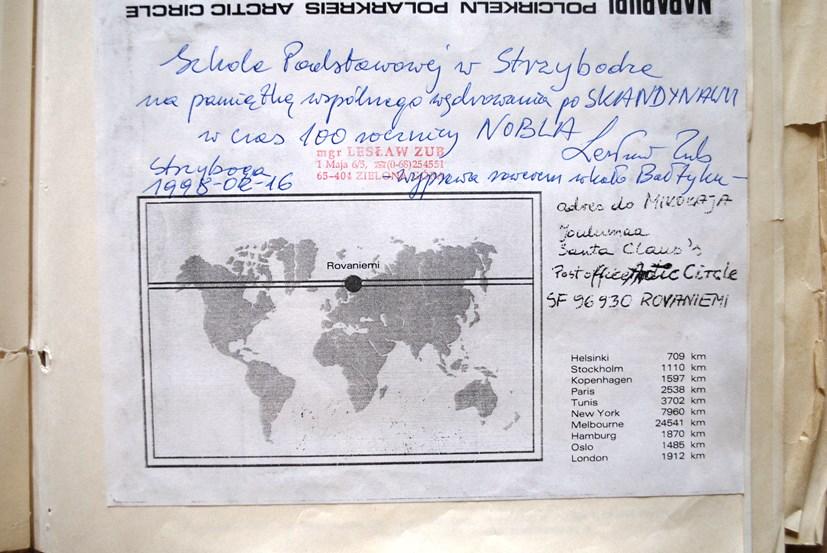 NAPAPIIRI POLCIRKELN POLARKREIS ARCTIC CIRCLE
Szkole Podstawowej w Strzybodze
na pamiątkę wspólnego wędrowania po SKANDYNAWII
w czas 100 rocznicy NOBLA
Lesław Zub
mgr LESŁAW ZUB
1 Maja 6/5, (0-68) 254551
65-401 ZIELONA
Strzyboga
1998-02-16
- Wyprawa rowerem wkoło Bałtyku -
adres do MIKOŁAJA
Joulumaa
Santa Claus's
Post office, Arctic Circle
SF 96930 ROVANIEMI
Rovaniemi
Helsinki 709 km
Stockholm 1110 km
Kopenhagen 1597 km
Paris 2538 km
Tunis 3702 km
New York 7960 km
Melbourne 24541 km
Hamburg 1870 km
Oslo 1485 km
London 1912 km